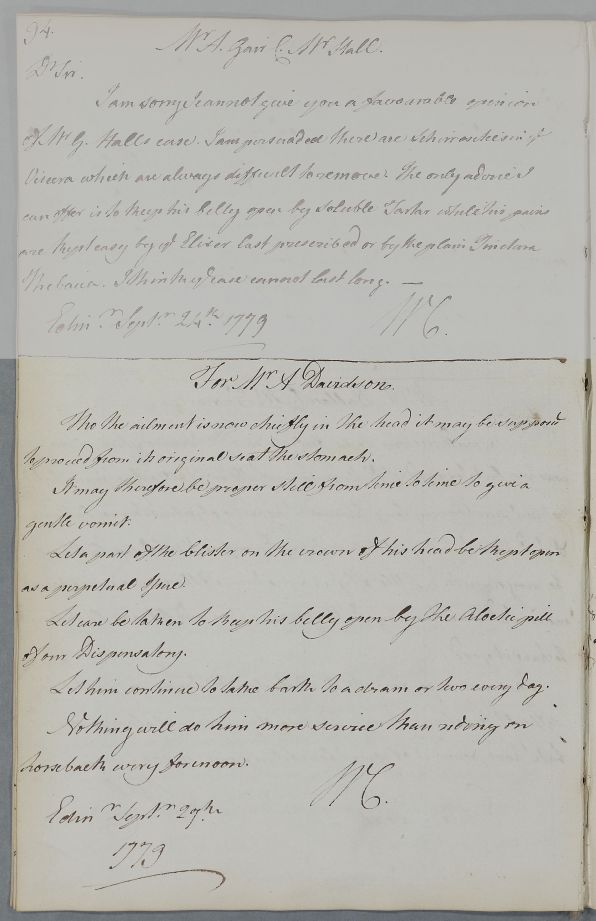 94.
Mr. A. Gair C. Mr. Hall.
Dr. Sir.
I am sorry I cannot give you a favourable opinion
of Mr. G. Halls case. I am perswaded there are Schirrosities in ye
Viscera which are always difficult to remove. The only advice I
can offer is to keep his belly open by Soluble Tartar while his pains
are kept easy by ye Elixer last prescribed or by the plain Tinctura
Thebaica. I think ye case cannot last long. —
Edinr. Septr. 24th. 1779
WC.
For Mr. A Davidson.
Tho the ailment is now chiefly in the head it may be suppos'd
to proceed from its original seat the stomach.
It may therefore be proper still from time to time to give a
gentle vomit.
Let a part of the blister on the crown of his head be kept open
as a perpetual Issue.
Let care be taken to keep his belly open by the Aloetic pill
of our Dispensatory.
Let him continue to take bark to a dram or two every day.
Nothing will do him more service than riding on
horseback every forenoon.
WC.
Edinr. Septr. 29th
1779